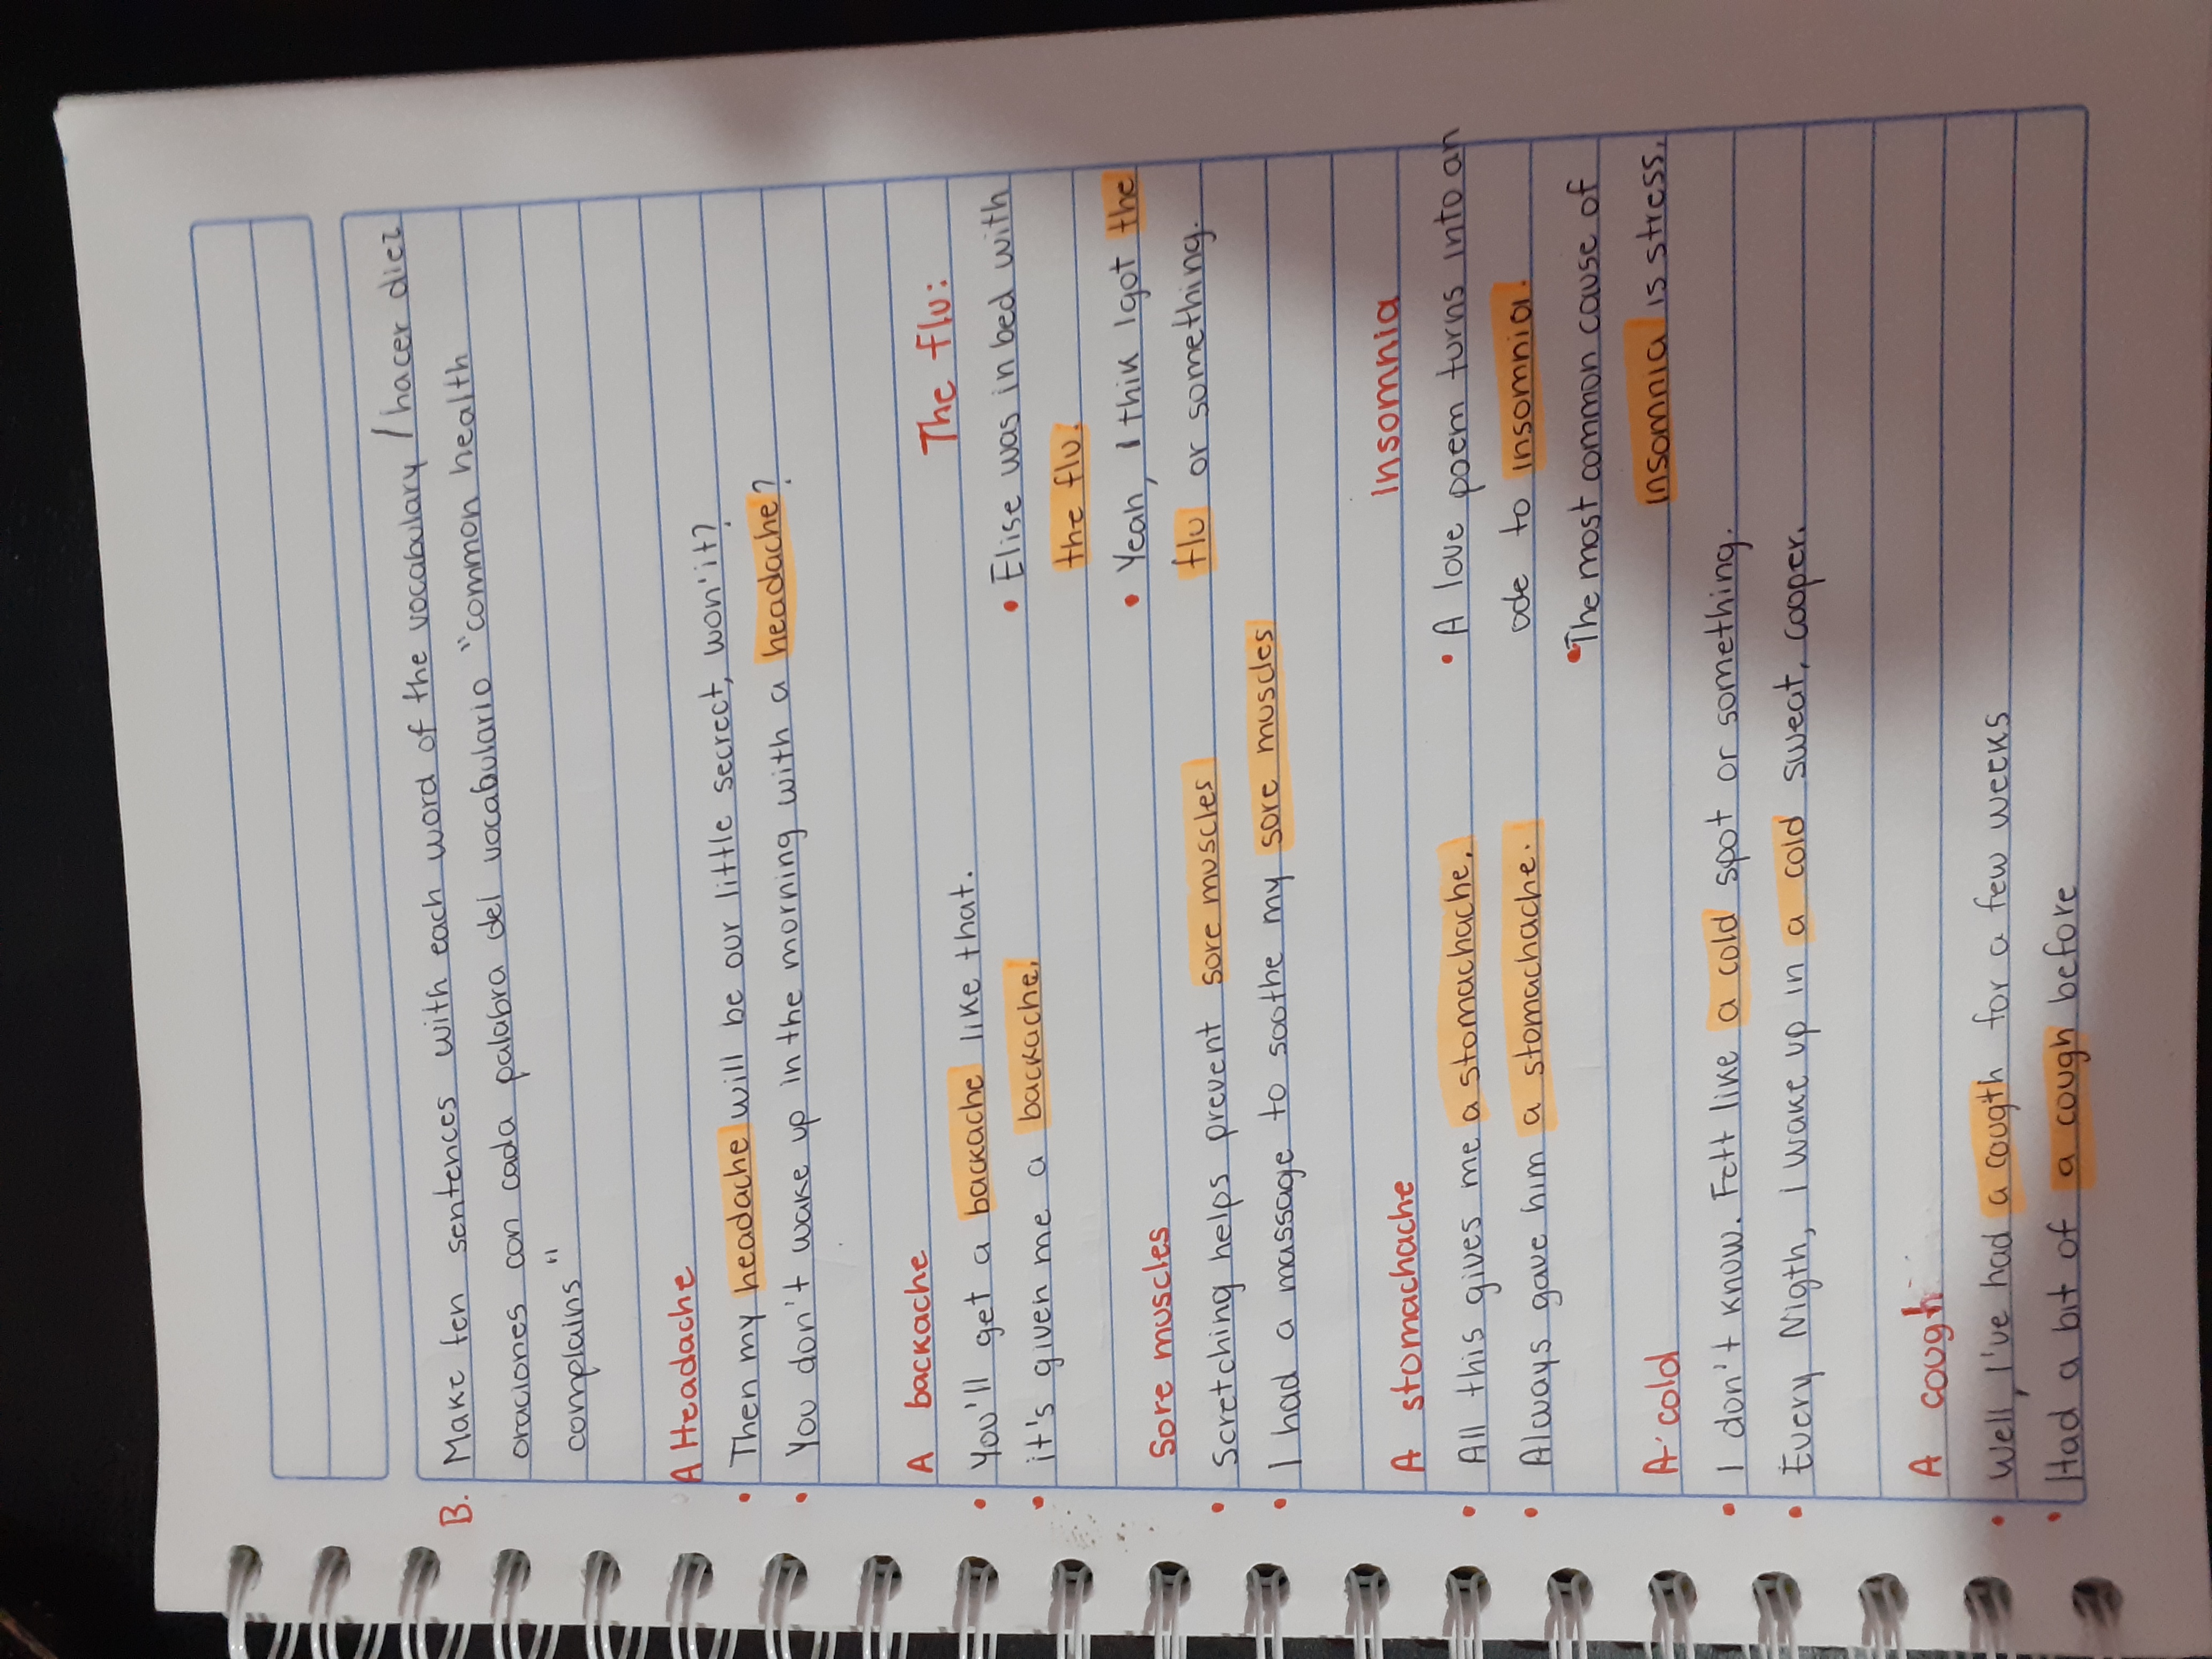 B. Make ten sentences with each word of the vocabulary / hacer diez
oraciones con cada palabra del vocabulario "common health
complains"
A Headache
• Then my headache will be our little secret, won'it?
• You don't wake up in the morning with a headache?
A backache
• You'll get a backache like that.
• it's given me a backache.
The flu:
• Elise was in bed with
the flu.
• Yeah, I thik I got the
flu or something.
Sore muscles
• Scretching helps prevent sore muscles
• I had a massage to soothe my sore muscles
A stomachache
• All this gives me a stomachache.
• Always gave him a stomachache.
Insomnia
• A love poem turns into an
ode to insomnia.
• The most common cause of
insomnia is stress.
A cold
• I don't know. Felt like a cold spot or something.
• Every Nigth, I wake up in a cold sweat, cooper.
A cough
• Well, I've had a cough for a few weeks
• Had a bit of a cough before